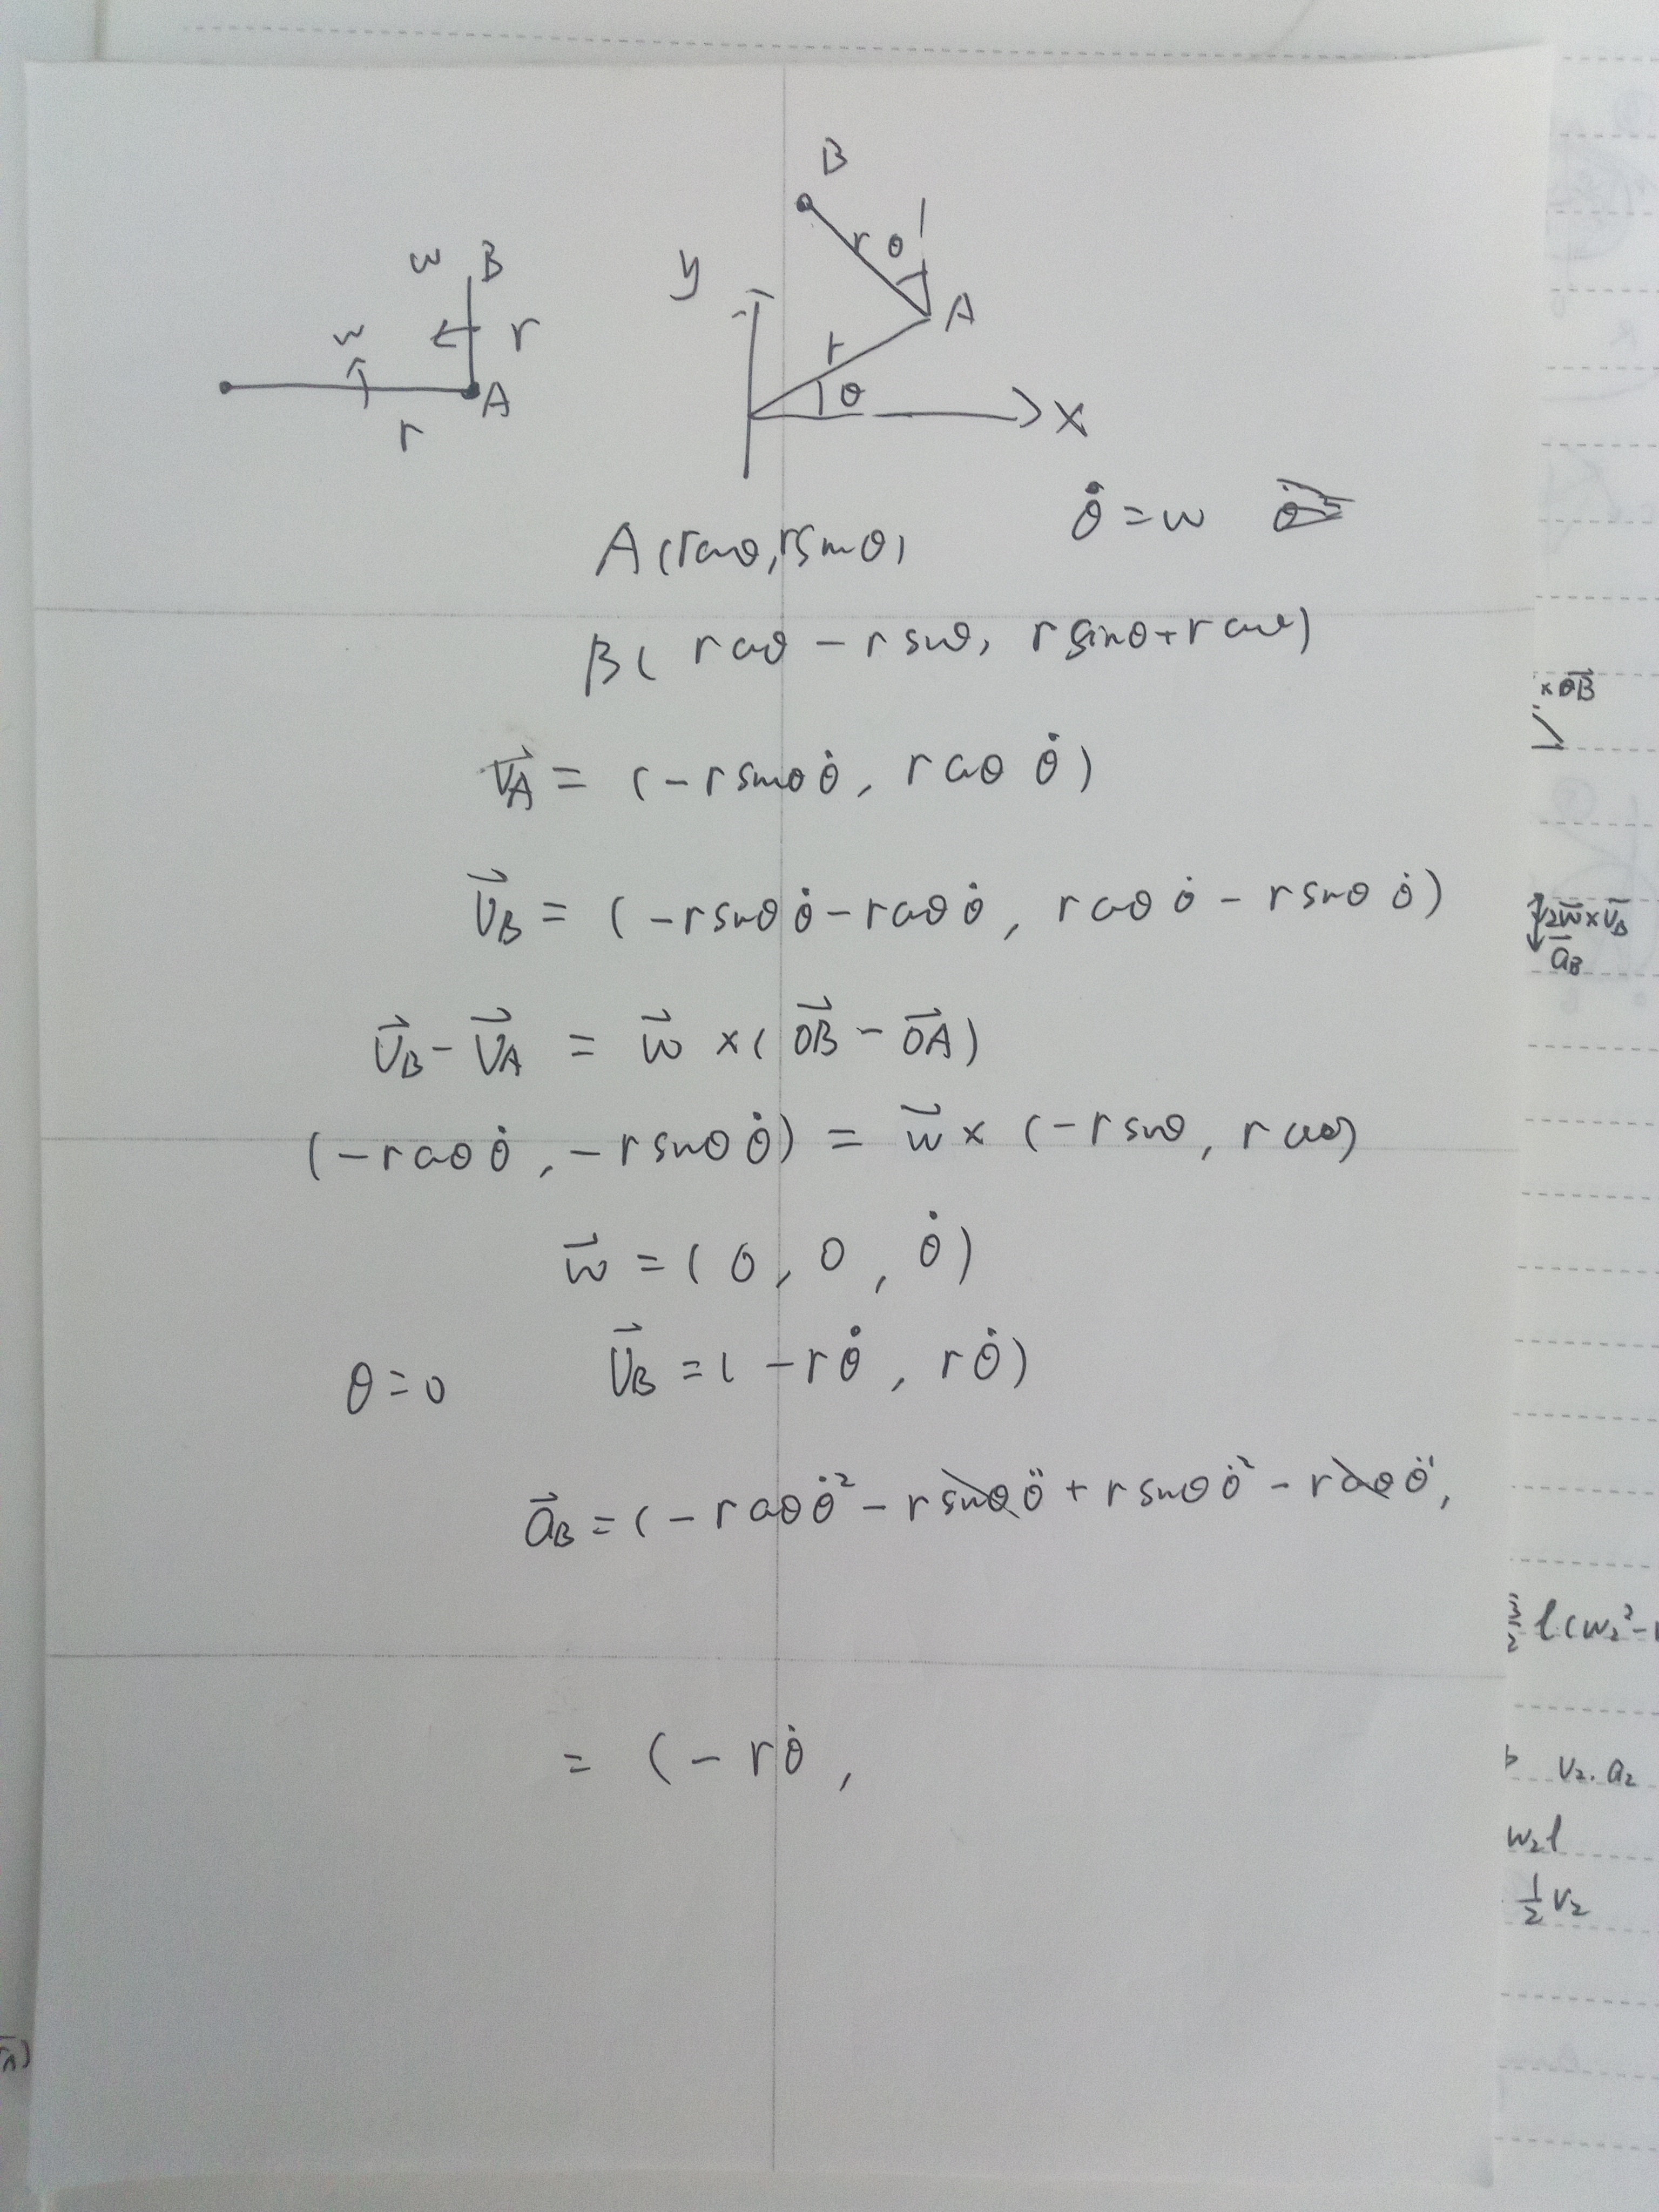 B
w B
w
r
A
r
y
r θ
A
r
θ
x
θ̇ = w
A (rcosθ, rsinθ)
B ( rcosθ - rsinθ, rsinθ + rcosθ)
V⃗A = (-rsinθ θ̇, rcosθ θ̇)
V⃗B = (-rsinθ θ̇ - rcosθ θ̇, rcosθ θ̇ - rsinθ θ̇)
V⃗B - V⃗A = w⃗ × ( OB⃗ - OA⃗ )
(-rcosθ θ̇, -rsinθ θ̇) = w⃗ × (-rsinθ, rcosθ)
w⃗ = ( 0, 0, θ̇ )
θ = 0 V⃗B = ( -rθ̇, rθ̇ )
a⃗B = ( - rcosθ θ̇² - rsinθ θ̈ + rsinθ θ̇² - rcosθ θ̈,
= ( - rθ̇ ,
× OB⃗
2w⃗ × V⃗B
a⃗B
3/2 l(w₂² -
V₂. a₂
w₂l
1/2 V₂